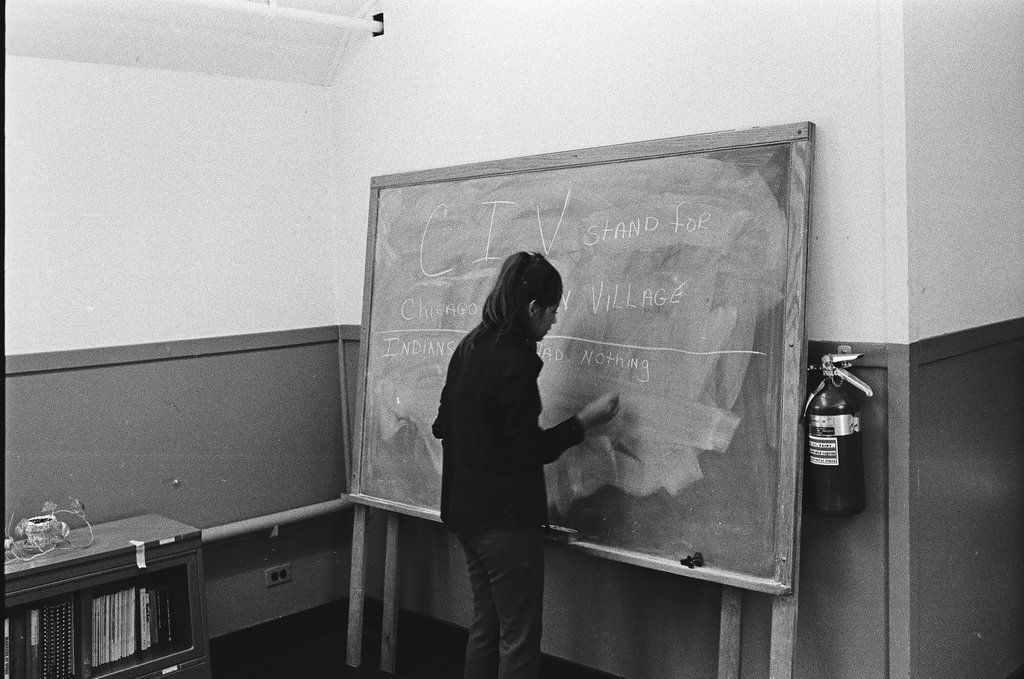 C I V STAND FOR
CHICAGO N VILLAGE
INDIANS AD NOTHING